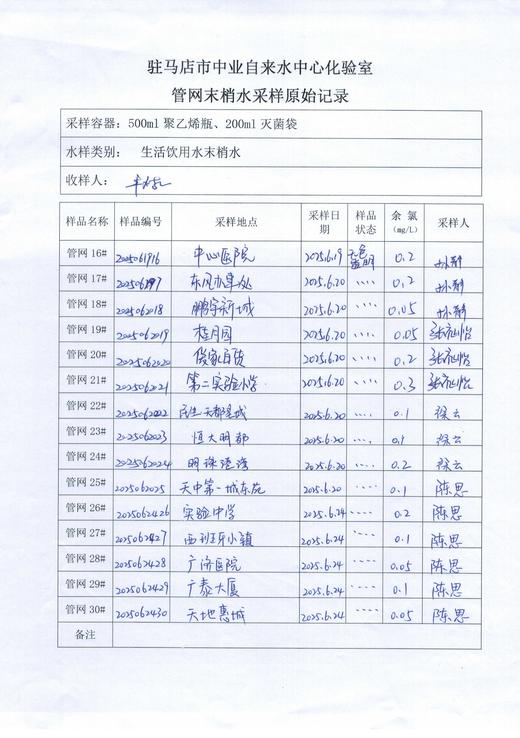 驻马店市中业自来水中心化验室
管网末梢水采样原始记录
采样容器：500ml 聚乙烯瓶、200ml 灭菌袋
水样类别： 生活饮用水末梢水
收样人：
样品名称 样品编号 采样地点 采样日期 样品状态 余氯(mg/L) 采样人
管网 16# 2025061916 中心医院 2025.6.19 无色透明 0.2
管网 17# 东风办事处 2025.6.20 〃〃 0.2
管网 18# 2025062018 鹏宇新城 2025.6.20 〃〃 0.05
管网 19# 2025062019 桂月园 2025.6.20 〃〃 0.05
管网 20# 2025062020 俊家百货 2025.6.20 〃〃 0.2
管网 21# 2025062021 第二实验小学 2025.6.20 〃〃 0.3
管网 22# 2025062022 2025.6.20 〃〃 0.1 徐云
管网 23# 2025062023 恒大明都 2025.6.20 〃〃 0.1 徐云
管网 24# 2025062024 明珠港湾 2025.6.20 〃〃 0.2 徐云
管网 25# 2025062025 天中第一城东苑 2025.6.20 〃〃 0.1 陈思
管网 26# 2025062426 实验中学 2025.6.24 〃〃 0.2 陈思
管网 27# 2025062427 西班牙小镇 2025.6.24 〃〃 0.1 陈思
管网 28# 2025062428 广济医院 2025.6.24 〃〃 0.05 陈思
管网 29# 2025062429 广泰大厦 2025.6.24 〃〃 0.1 陈思
管网 30# 2025062430 天地惠城 2025.6.24 〃〃 0.05 陈思
备注